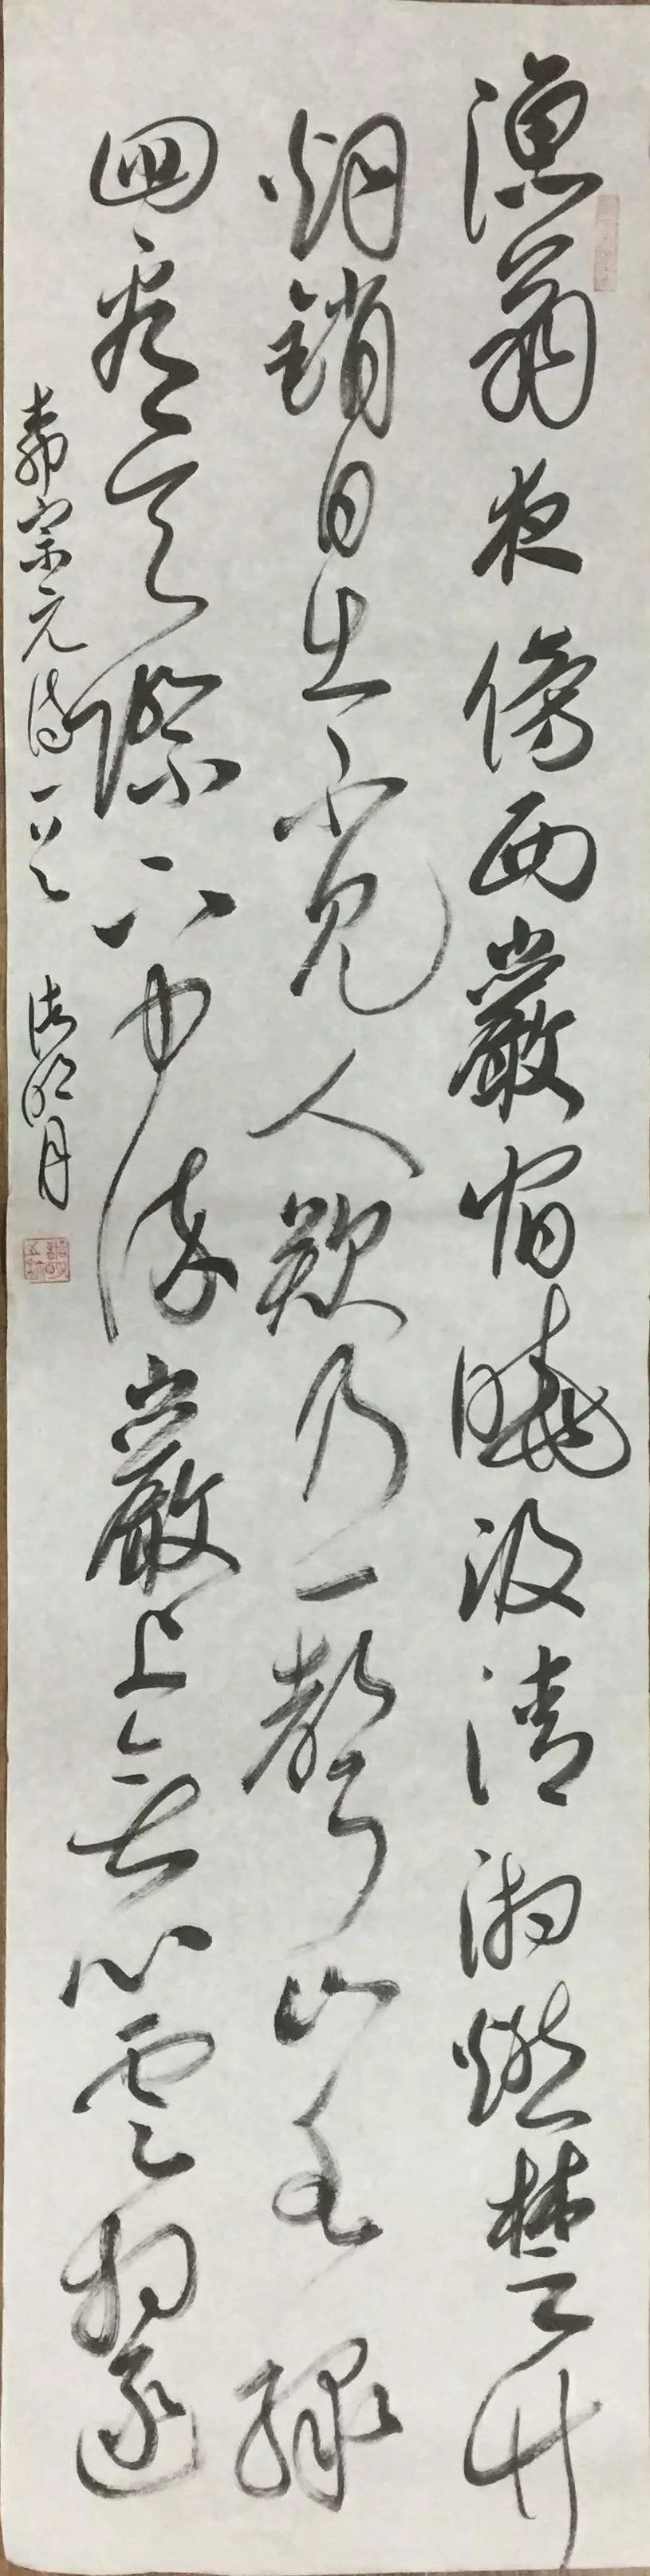 漁翁夜傍西巖宿曉汲清湘燃楚竹
烟銷日出不見人欸乃一聲山水綠
回看天際下中流巖上無心雲相逐
柳宗元詩一首 月